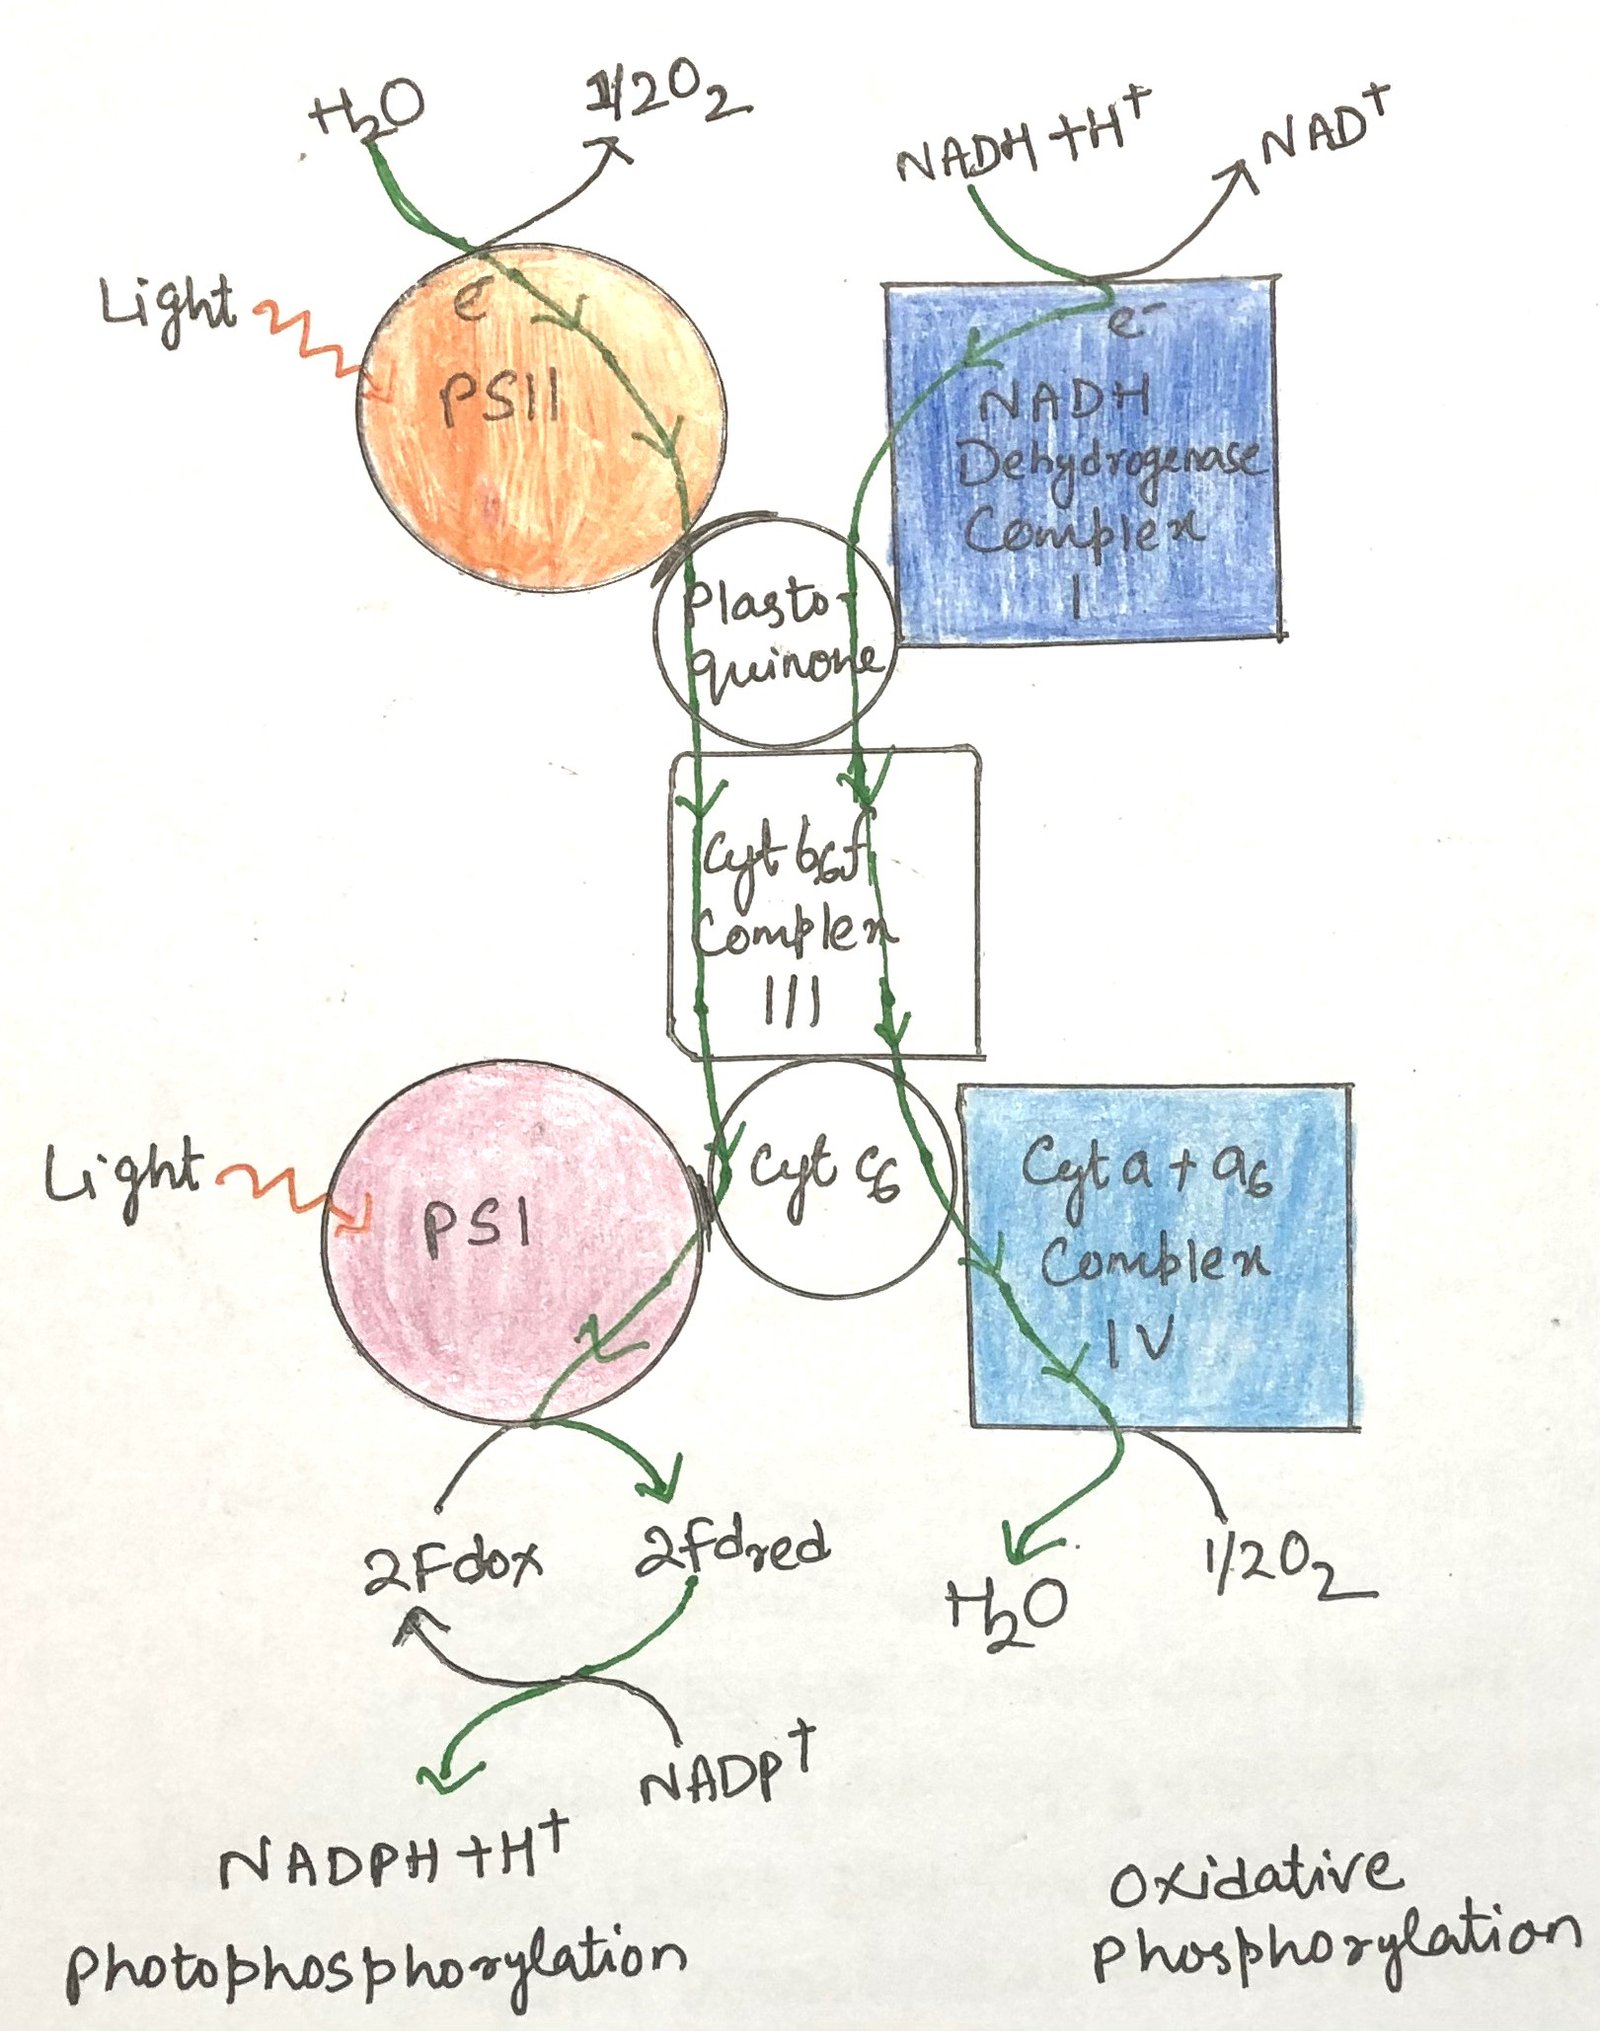 H2O
1/2O2
NADH+H+
NAD+
Light
e-
PSII
e-
NADH
Dehydrogenase
Complex
I
Plasto-
quinone
Cyt b6f
Complex
III
Light
PSI
Cyt c6
Cyt a + a6
Complex
IV
2Fdox
2fdred
H2O
1/2O2
NADP+
NADPH+H+
Photophosphorylation
Oxidative
Phosphorylation